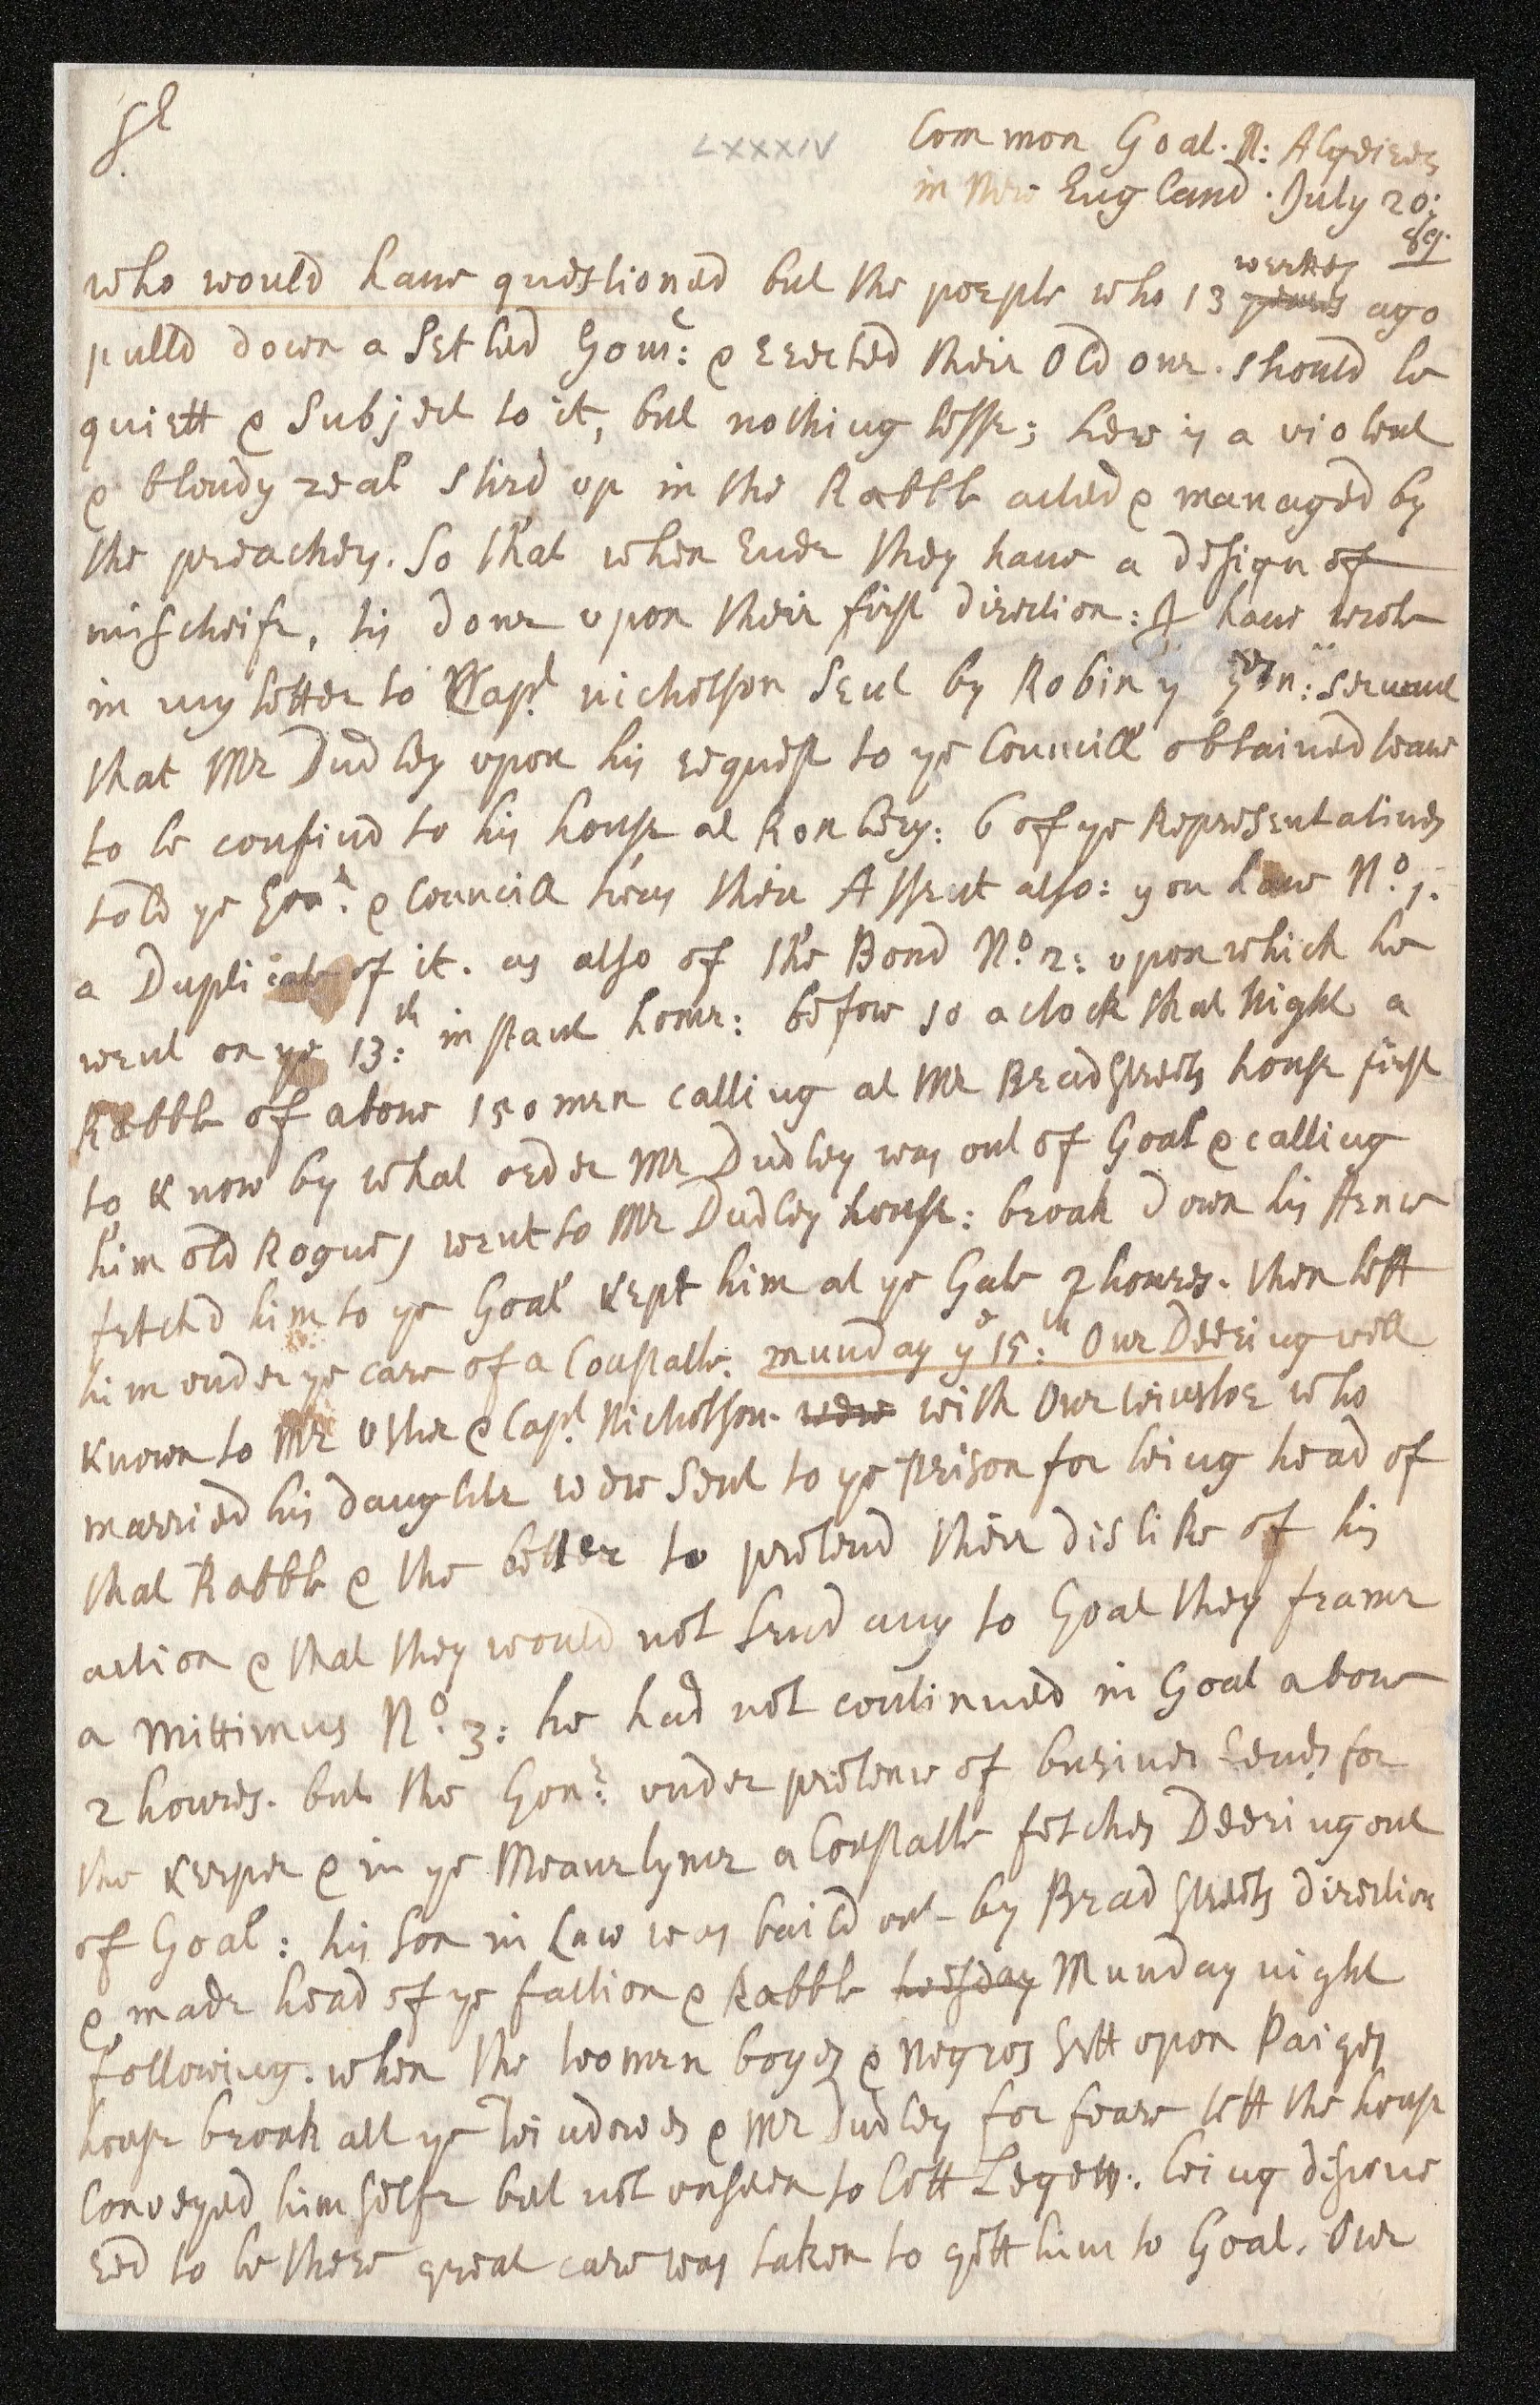 Sr
LXXXIV
Common Goal. N: Algeires
in New England. July 20:
89.
who would have questioned but the poeple who 13 weekes years ago
pulld down a Setled Gour: & Erected their Old one. should be
quiett & Subject to it, but nothing lesse; here is a violent
& bloudy zeal stird up in the Rabble acted & managed by
the preachers. So that when Ever they have a design of
mischeife, tis done upon their first direction: I have wrote
in my letter to Capt nicholson Sent by Robin ye servant
that Mr Dudley upon his request to ye Councill obtained leave
to be confind to his house at Roxbery: 6 of ye Representatives
told ye & Councill twas their Assent also: you have No. 1.
a Duplicate of it. as also of the Bond No. 2: upon which he
went on ye 13:th instant home: before 10 a clock that Night a
Rabble of above 150 men calling at Mr Bradstreets house first
to know by what order Mr Dudley was out of Goal & calling
him old Rogues went to Mr Dudley house: broak down his fence
fetchd him to ye Goal kept him at ye Gate 2 houres. then left
him under ye care of a Constable. munday ye 15:th Our Deering well
known to Mr Usher & Capt Nicholson. were with One winsloe who
married his daughter were Sent to ye prison for being head of
that Rabble & the better to pretend their dislike of his
action & that they would not Send any to Goal they frame
a Mittimus No. 3: he had not continued in Goal above
2 houres. but the Gour: under pretence of busines Sends for
the keeper & in ye Meane tyme a Constable fetches Deering out
of Goal: his Son in Law was baild out by Bradstreets direction
& made head of ye faction & Rabble tuesday Munday night
following. when the woomen boyes & Negros Sett upon Paiges
house broak all ye windowes & Mr Dudley for feare left the house
Conveyed himselfe but not unseen to Coll Legetts. being discove
red to be there great care was taken to gett him to Goal. Our